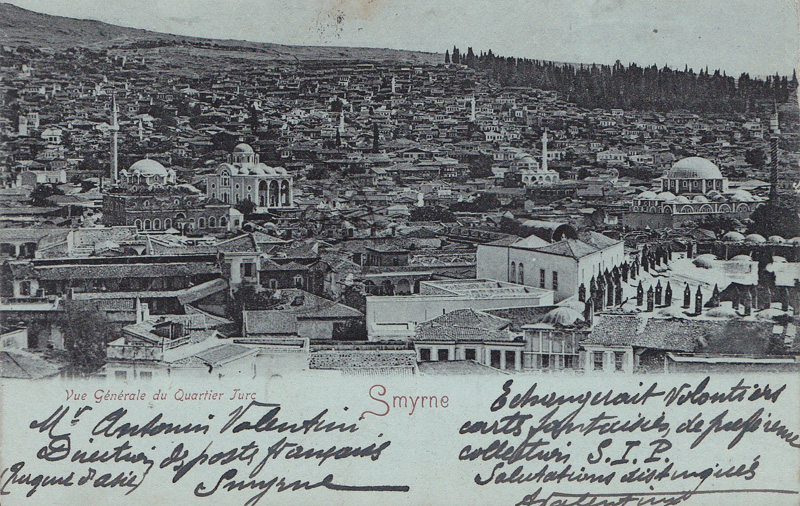 Vue Générale du Quartier Turc
Smyrne
Mr Antonin Valentin
Direction des poste français
(Turquie d'asie) Smyrne
Echangerait volontiers
carts fantaisies de préférence
collection S.I.P.
Salutations distingués
AValentin